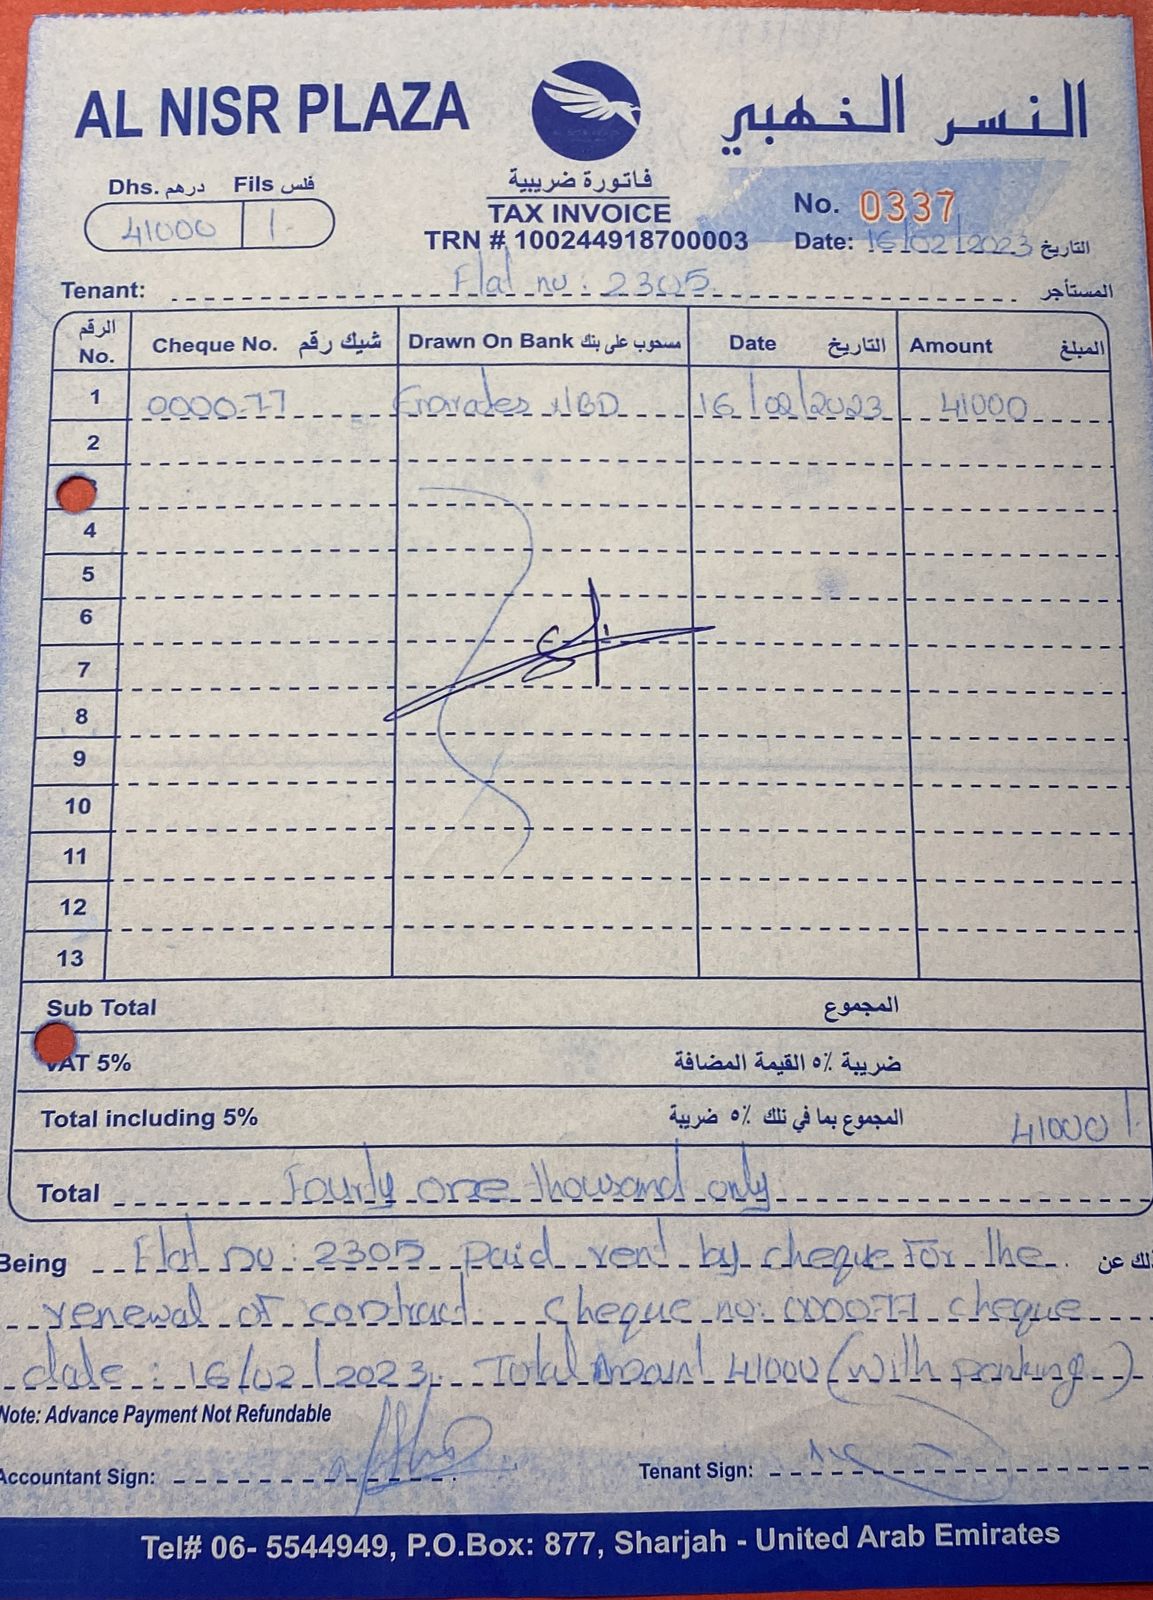 AL NISR PLAZA
النسر الذهبي
Dhs. درهم Fils فلس
41000 /.
فاتورة ضريبية
TAX INVOICE
TRN # 100244918700003
No. 0337
Date: 16/02/2023 التاريخ
Tenant: Flat no : 2305 المستأجر
الرقم No. Cheque No. شيك رقم Drawn On Bank مسحوب على بنك Date التاريخ Amount المبلغ
1 000077 Emirates NBD 16/02/2023 41000
2
4
5
6
7
8
9
10
11
12
13
Sub Total المجموع
VAT 5% ضريبة ٥٪ القيمة المضافة
Total including 5% المجموع بما في تلك ٥٪ ضريبة 41000/.
Total Fourty one thousand only
Being Flat no : 2305 paid rent by cheque for the ذلك عن
renewal of contract cheque no: 000077 cheque
date : 16/02/2023. Total Amount 41000 (with parking.)
Note: Advance Payment Not Refundable
Accountant Sign:
Tenant Sign:
Tel# 06- 5544949, P.O.Box: 877, Sharjah - United Arab Emirates